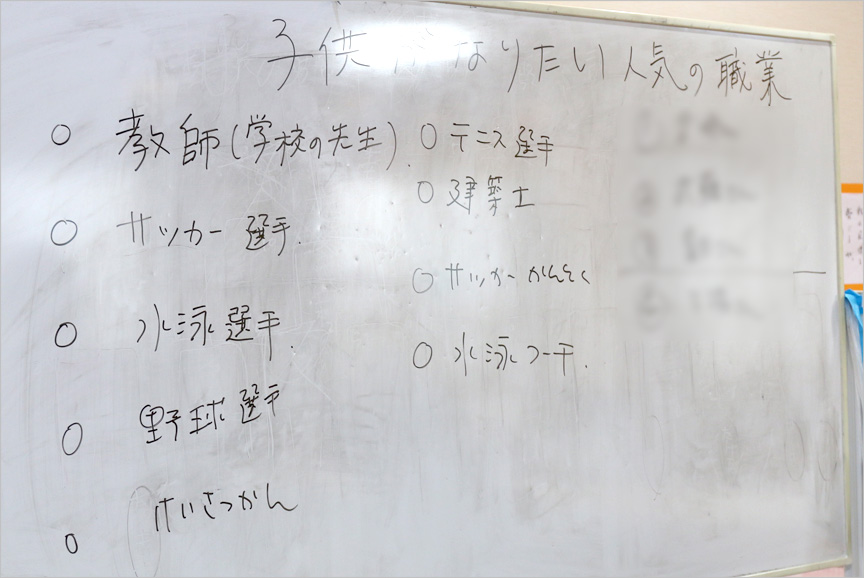 子供がなりたい人気の職業
○ 教師(学校の先生).
○ サッカー選手.
○ 水泳選手.
○ 野球選手
○ けいさつかん
○ テニス選手
○ 建築士
○ サッカーかんとく
○ 水泳コーチ.